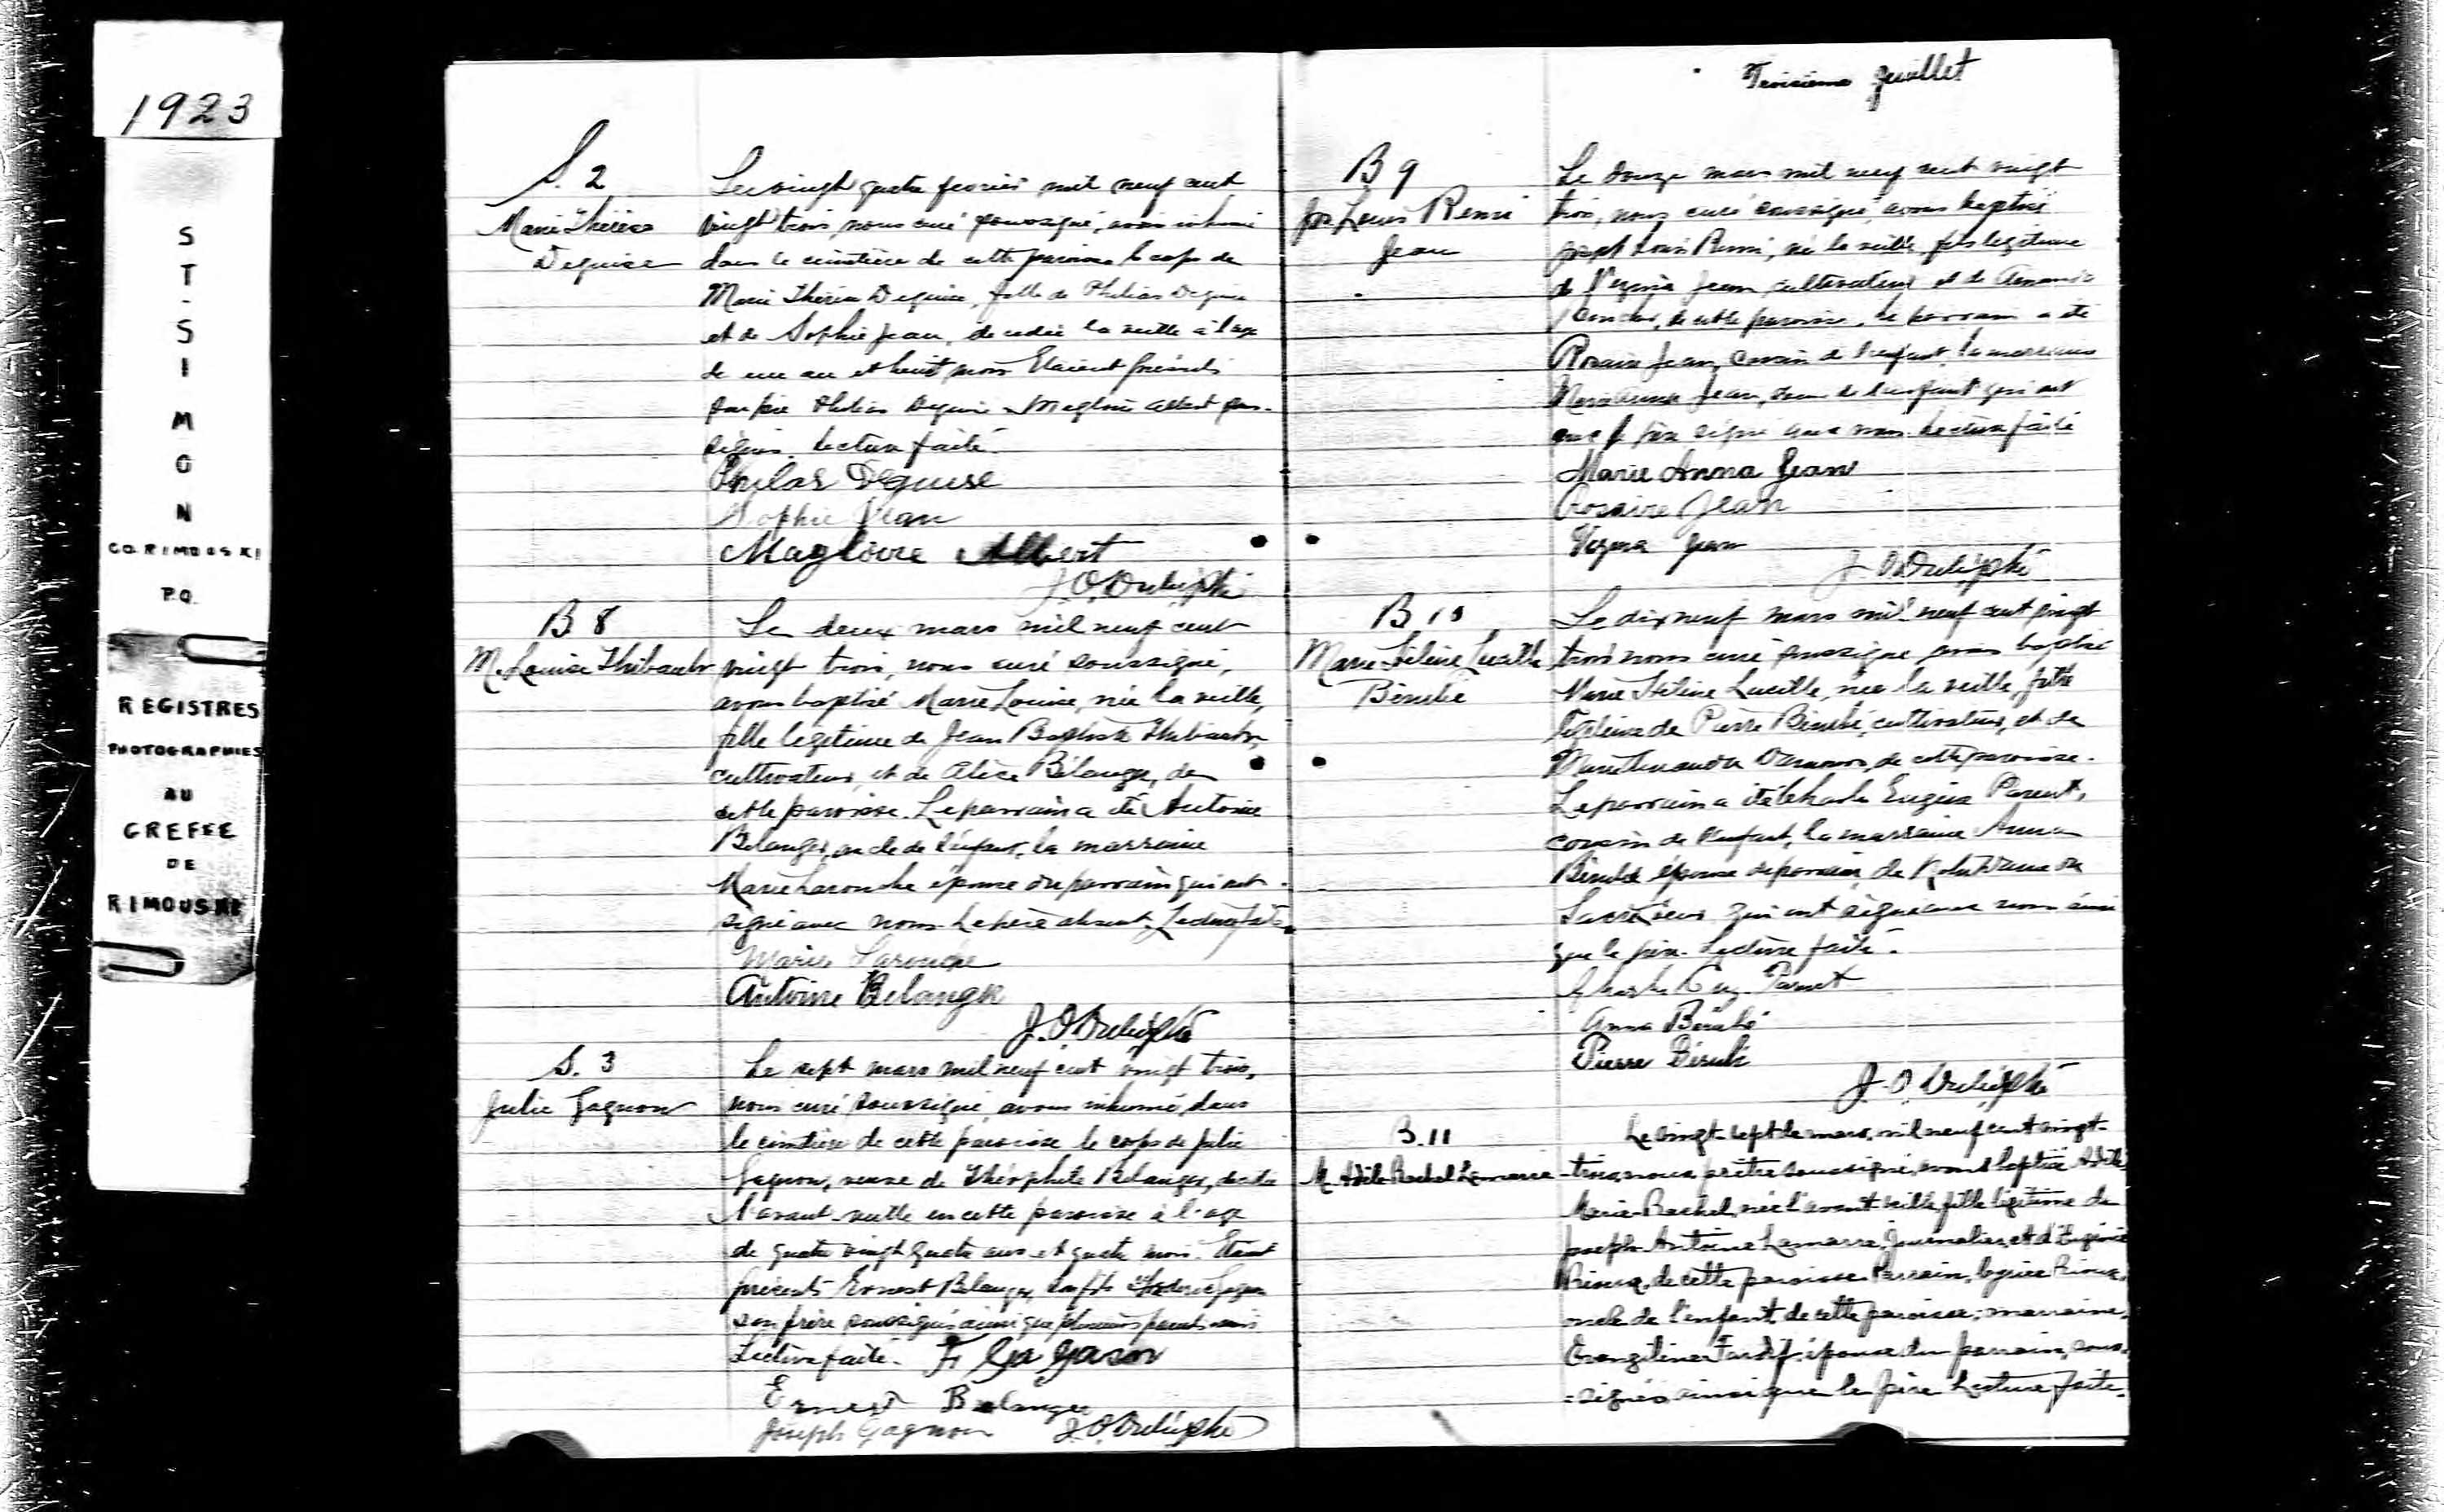 1923
ST-SIMON
CO. RIMOUSKI
P.Q.
REGISTRES
PHOTOGRAPHIES
AU
GREFFE
DE
RIMOUSKI
S. 2
Marie Thérèse
Deguise
Le vingt quatre fevrier mil neuf cent
vingt trois, nous curé soussigné, avons inhumé
dans le cimetière de cette paroisse le corps de
Marie Thérèse Deguise, fille de Philias Deguise
et de Sophie Jean, decedée la veille à l'age
de un an et huit mois Etaient présents
son père Philias Deguise Magloire Albert sous-
signés. Lecture faite.
Philas Deguise
Sophie Jean
Magloire Albert
J. O. Drulez Ptre
B 8
M. Louise Thibault
Le deux mars mil neuf cent
vingt trois, nous curé soussigné,
avons baptisé Marie Louise, née la veille,
fille legitime de Jean Baptiste Thibault,
cultivateur, et de Alice Bélanger, de
cette paroisse. Le parrain a été Antoine
Belanger, oncle de l'enfant, la marraine
Marie Larouche épouse du parrain qui ont
signé avec nous. Le père absent. Lecture faite
Marie Larouche
Antoine Belanger
J. O. Drulez Ptre
S. 3
Julie Gagnon
Le sept mars mil neuf cent vingt trois,
nous curé soussigné, avons inhumé, dans
le cimetière de cette paroisse le corps de Julie
Gagnon, veuve de Théophile Belanger, decedée
l'avant-veille en cette paroisse à l'age
de quatre vingt quatre ans et quatre mois. Etaient
présents Ernest Belanger, son fils
son frère soussignés ainsi que plusieurs parents amis
Lecture faite.
Ernest Belanger
Joseph Gagnon J. O. Drulez Ptre
Troisième feuillet
B 9
Jos Louis Remi
Jean
Le douze mars mil neuf cent vingt
trois, nous curé soussigné, avons baptisé
Joseph Louis Remi, né la veille, fils legitime
de Jean cultivateur et de
de cette paroisse. Le parrain a été
Rosaire Jean, cousin de l'enfant, la marraine
Marie Anna Jean, soeur de l'enfant qui ont
avec le père signé avec nous. Lecture faite
Marie Anna Jean
Rosaire Jean
Jean
J. O. Drulez Ptre
B 10
Marie Hélène Lucille
Bérubé
Le dix neuf mars mil neuf cent vingt
trois nous curé soussigné avons baptisé
Marie Hélène Lucille, née la veille, fille
légitime de Pierre Bérubé, cultivateur, et de
de cette paroisse.
Le parrain a été Charles Eugène Parent,
cousin de l'enfant, la marraine Anna
Bérubé épouse du parrain, de Notre Dame du
Sacré Coeur qui ont signé avec nous ainsi
que le père. Lecture faite.
Charles Eug. Parent
Anna Bérubé
Pierre Bérubé
J. O. Drulez Ptre
B. 11
M. Adèle Rachel Lamarre
Le vingt-sept de mars, mil neuf cent vingt-
trois, nous prêtre soussigné, avons baptisé Adèle
Marie-Rachel, née l'avant veille, fille légitime de
Joseph-Antoine Lamarre, journalier, et d'Eugénie
Rioux, de cette paroisse. Parrain, Rioux,
oncle de l'enfant, de cette paroisse; marraine,
Evangéline Tardif, épouse du parrain, sous-
=signés ainsi que le père Lecture faite.